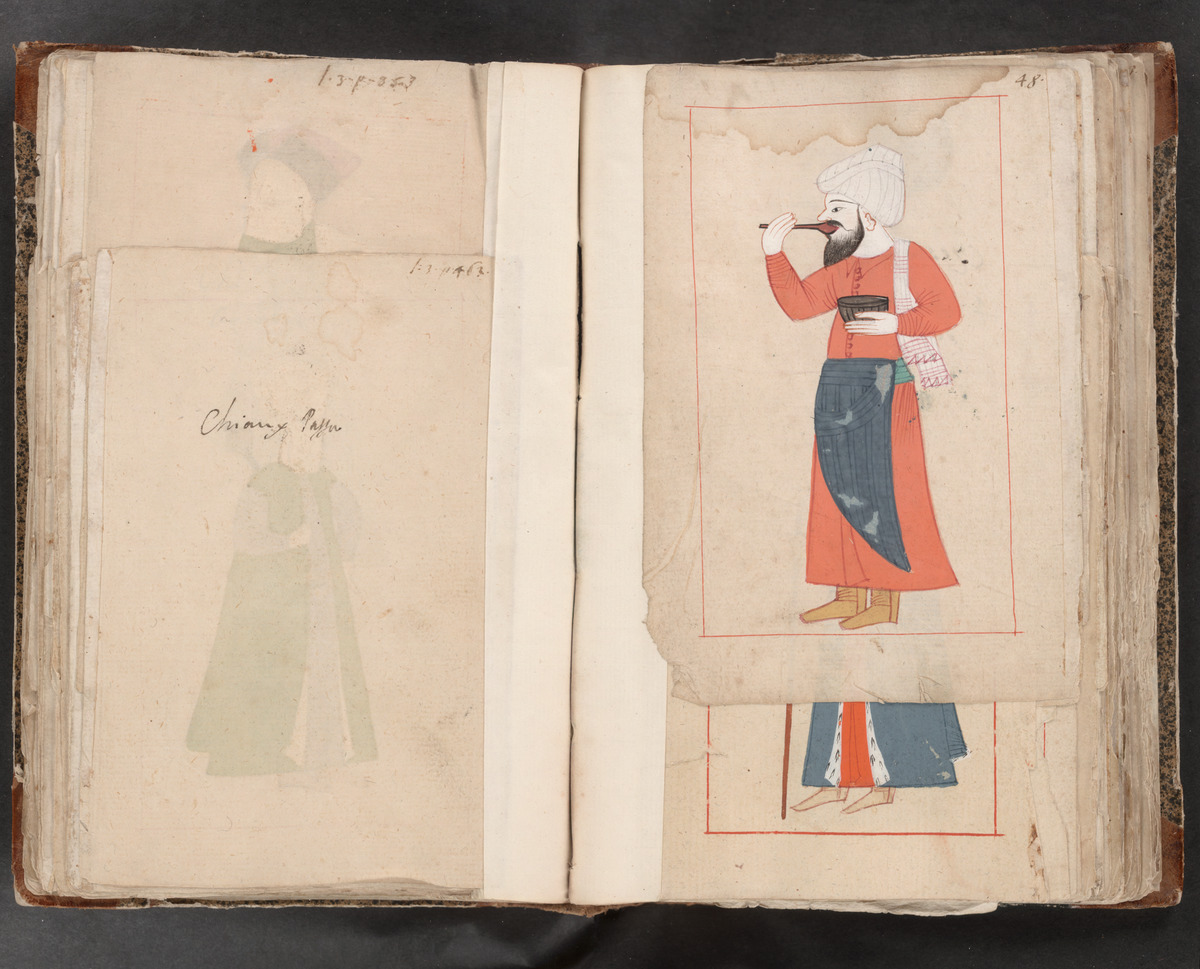 1-3-p-353
1-3-p-463-
Chiaux Passa
48.